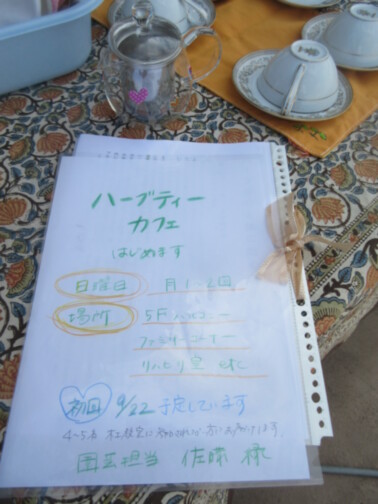 ハーブティー
カフェ
はじめます
日曜日 月1~2回
場所 5F バルコニー
ファミリーコーナー
リハビリ室
初回 9/22 予定しています
園芸担当 佐藤 様